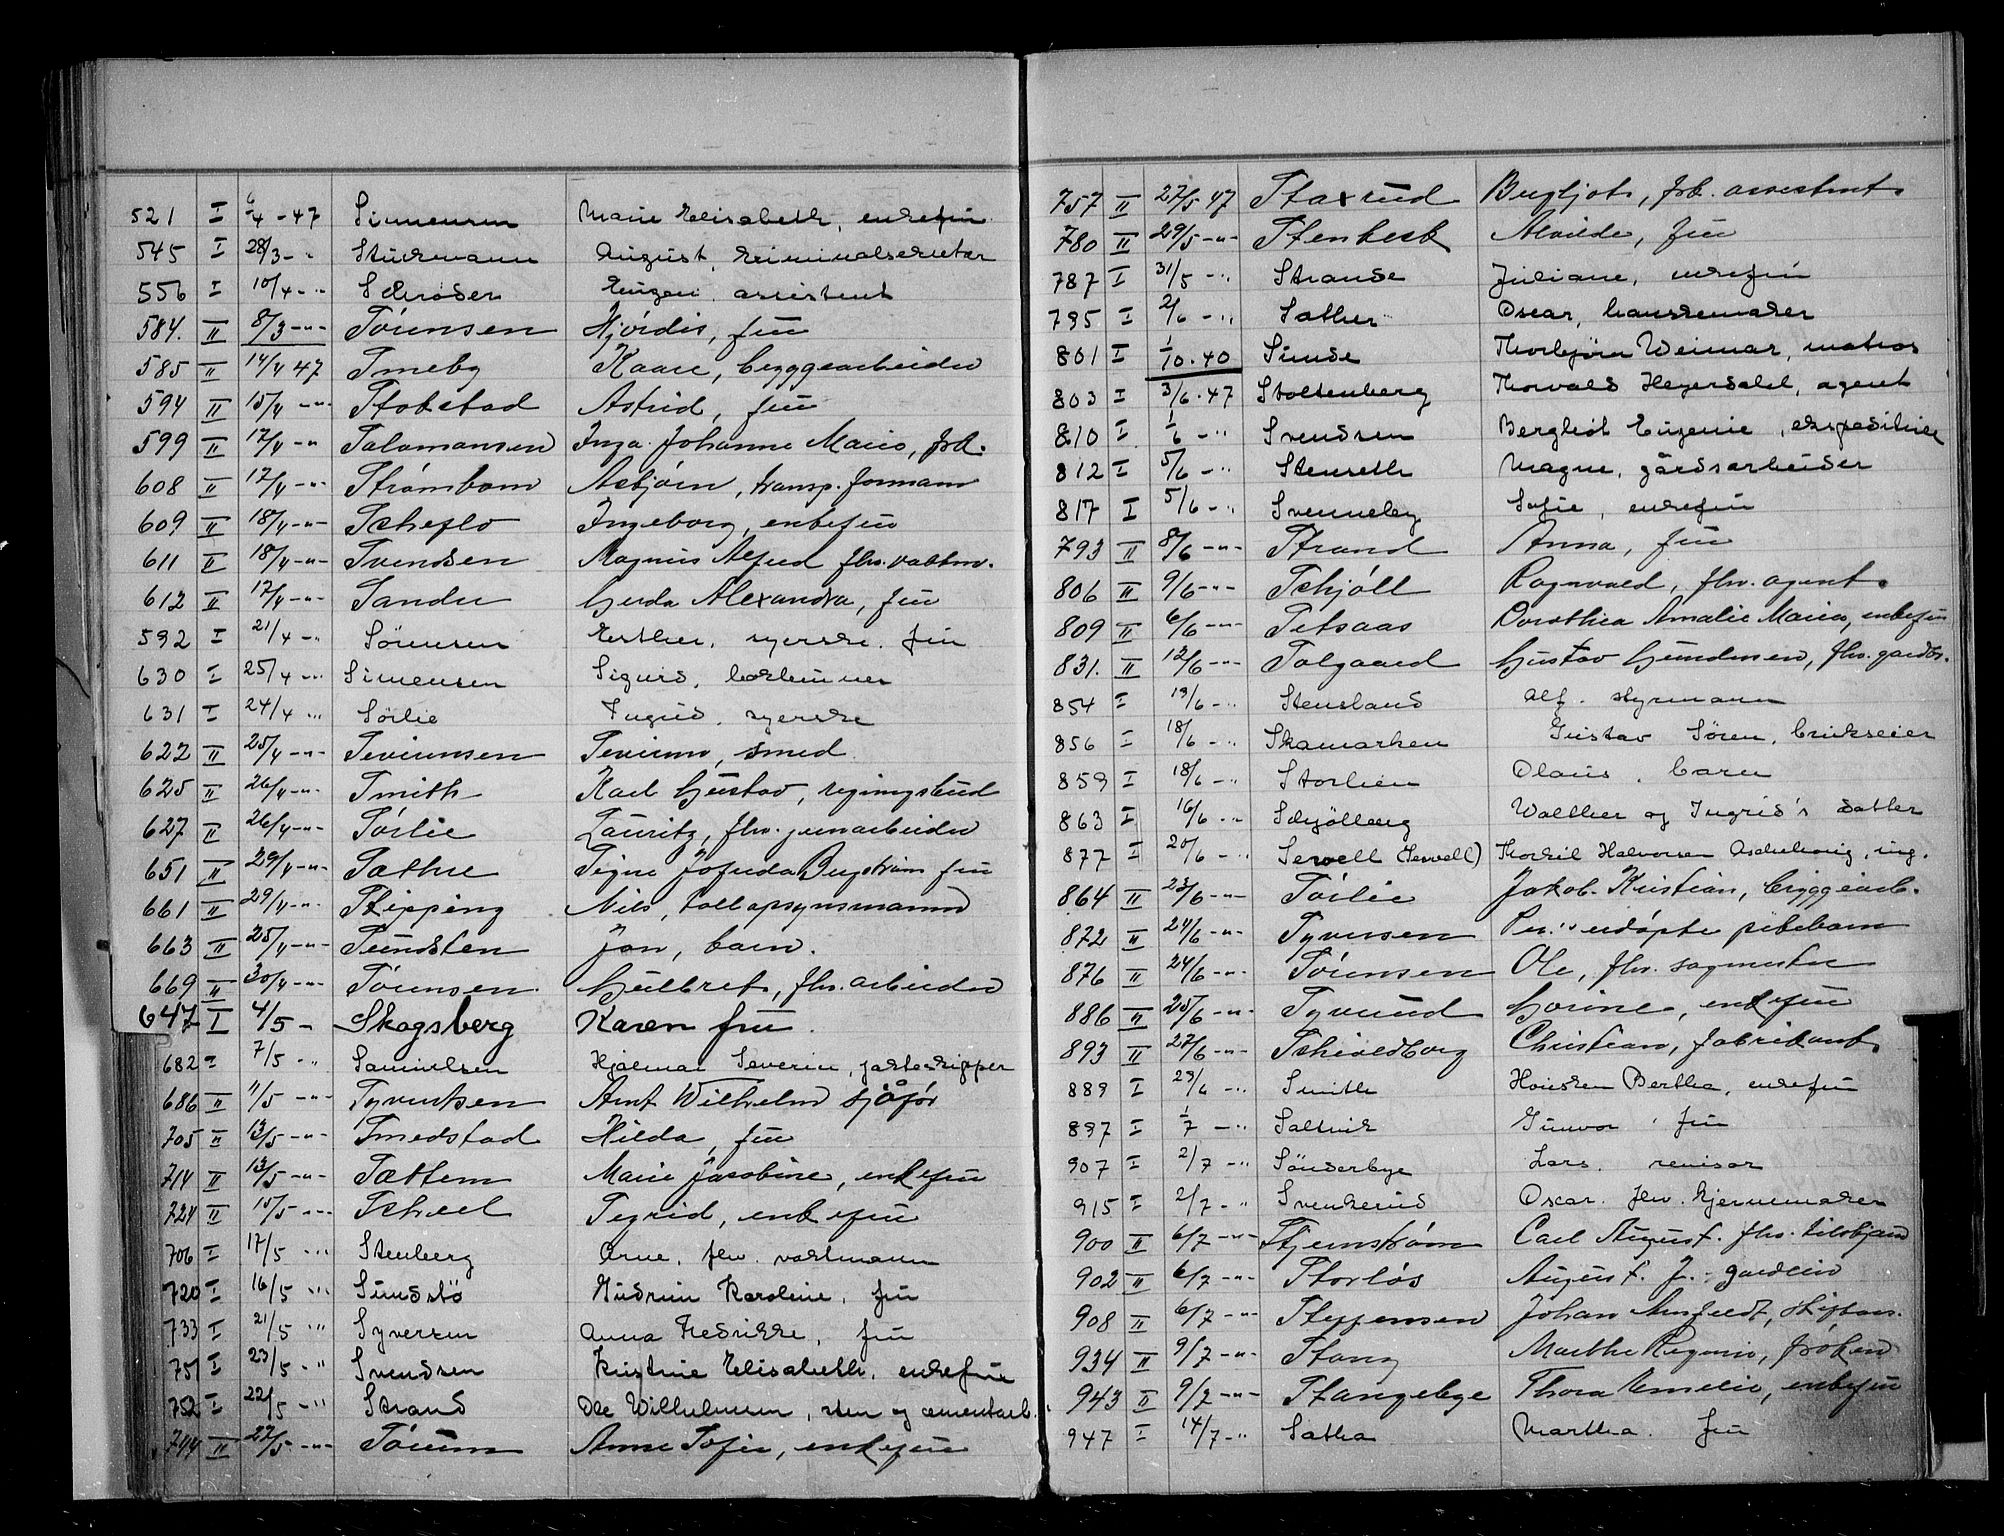 521 I 6/4 - 47 Simensen Marie Elisabeth, enkefru
545 I 28/3 - " Stuckmann August, kriminalsekretær
556 I 10/4 - " Schrøder Eugen, assistent
584. II 8/3 -"- Sørensen Hjørdis, fru
585 II 14/4 47 Smeby Kaare, byggearbeider
594 II 15/4 -"- Stokstad Astrid, fru
599 II 17/4 -"- Salomonsen Inga Johanne Marie, frk.
608 II 17/4 -"- Strømbom Asbjørn, transp. formann
609 II 18/4 -"- Scheflo Ingeborg, enkefru
611 II 18/4 -"- Svendsen Magnus Alfred fhv. vaktm.
612 II 17/4 -"- Sander Gerda Alexandra, fru
592 I 21/4 - " Sörensen Esther, syerske, fru
630 I 25/4 - " Simensen Sigurd,
631 I 24/4 " Sörlie Ingrid, syerske
622 II 25/4 -"- Severinsen Severin, smed
625 II 26/4 -"- Smith Karl Gustav, regningsbud
627 II 26/4 -"- Sørlie Lauritz, fhv. jernarbeider
651 II 29/4 -"- Sæthre Signe Josefida Bergstrøm fru
661 II 29/4 -"- Skipping Nils, tollopsynsmann
663 II 25/4 -"- Sundsten Jan, barn.
669 II 30/4 -"- Sørensen Gulbret, fhv. arbeider
647 I 4/5 - Skogsberg Karen fru.
682 I 7/5 - " Samuelsen Hjalmar Severin, jakteskipper
686 II 11/5 -"- Syvertsen Arnt Wilhelm sjåfør
705 II 13/5 -"- Smedstad Hilda, fru
714 II 13/5 -"- Sættem Marie Jacobine, enkefru
724 II 15/5 -"- Scheel Sigrid, enkefru
706 I 17/5 " Stenberg Arne, fhv. vaktmann
720 I 16/5 " Sundstö Gudrun Karoline, fru
733 I 21/5 " Syversen Anna Fredrikke, fru
751 I 23/5 - " Svendsen Kristine Elisabeth, enkefrue
752 I 22/5 - " Strand Ole Wilhelmsen, sten og cementarb.
744 II 27/5 -"- Sørum Anne Sofie, enkefru
757 II 27/5 47 Staxrud Bergljot, frk. assistent
780 II 29/5 -"- Stenbeck Alvilde, fru
787 I 31/5 - " Strande Juliane, enkefru
795 I 2/6 - " Sæther Oscar, hanskemaker
801 I 1/10. 40 Sunde Thorbjørn Weimar, matros
803 I 3/6. 47 Stoltenberg Thorvald Heyerdahl, agent
810 I 1/6 - " Svendsen Bergliot Eugenie, ekspeditrice
812 I 5/6 - " Stenseth Magne, gårdsarbeider
817 I 5/6 - " Svenneby Sofie, enkefru
793 II 8/6 -"- Strand Anna, fru
806 II 9/6 -"- Schjöll Ragnvald, fhv. agent.
809 II 6/6 -"- Setsaas Dorothea Amalie Marie, enkefru
831. II 12/6 -"- Solgaard Gustav Gundersen, fhv. gardbr.
854 I 13/6 - " Stensland Alf. styrmann
856 I 18/6 - " Skamarken Gustav Sören, brukseier
859 I 18/6 - " Storlien Olaus, barn
863 I 16/6 - " Schjölberg Walther og Ingrid's datter
877 I 20/6 - " Serwell (Sewell) Thorkil Halvorsen, ing.
864 II 23/6 -"- Sørlie Jakob Kristian, byggearb.
872 II 24/6 -"- Syversen Per's udøpte pikebarn
876 II 24/6 -"- Sørensen Ole, fhv. sagmester
886 II 25/6 -"- Syverud Gorine, enkefru
893 II 27/6 -"- Schioldborg Christian, fabrikant.
889 I 29/6 - " Smith Bertha, enkefru
897 I 1/7 - " Saltvik Gunvor, fru
907 I 2/7 - " Sönderbye Lars, revisor
915 I 2/7 - " Svenkerud Oscar, fhv.
900 II 6/7 -"- Stjernstrøm Carl August. fhv.
902 II 6/7 -"- Storløs August. J. gardeier
908 II 6/7 -"- Steffensen Johan Amfeldt,
934 II 9/7 -"- Stang Marthe Regine, frøken
943 II 9/7 -"- Stangebye Thora Emelie, enkefru
947 I 14/7 - " Satha Martha. fru